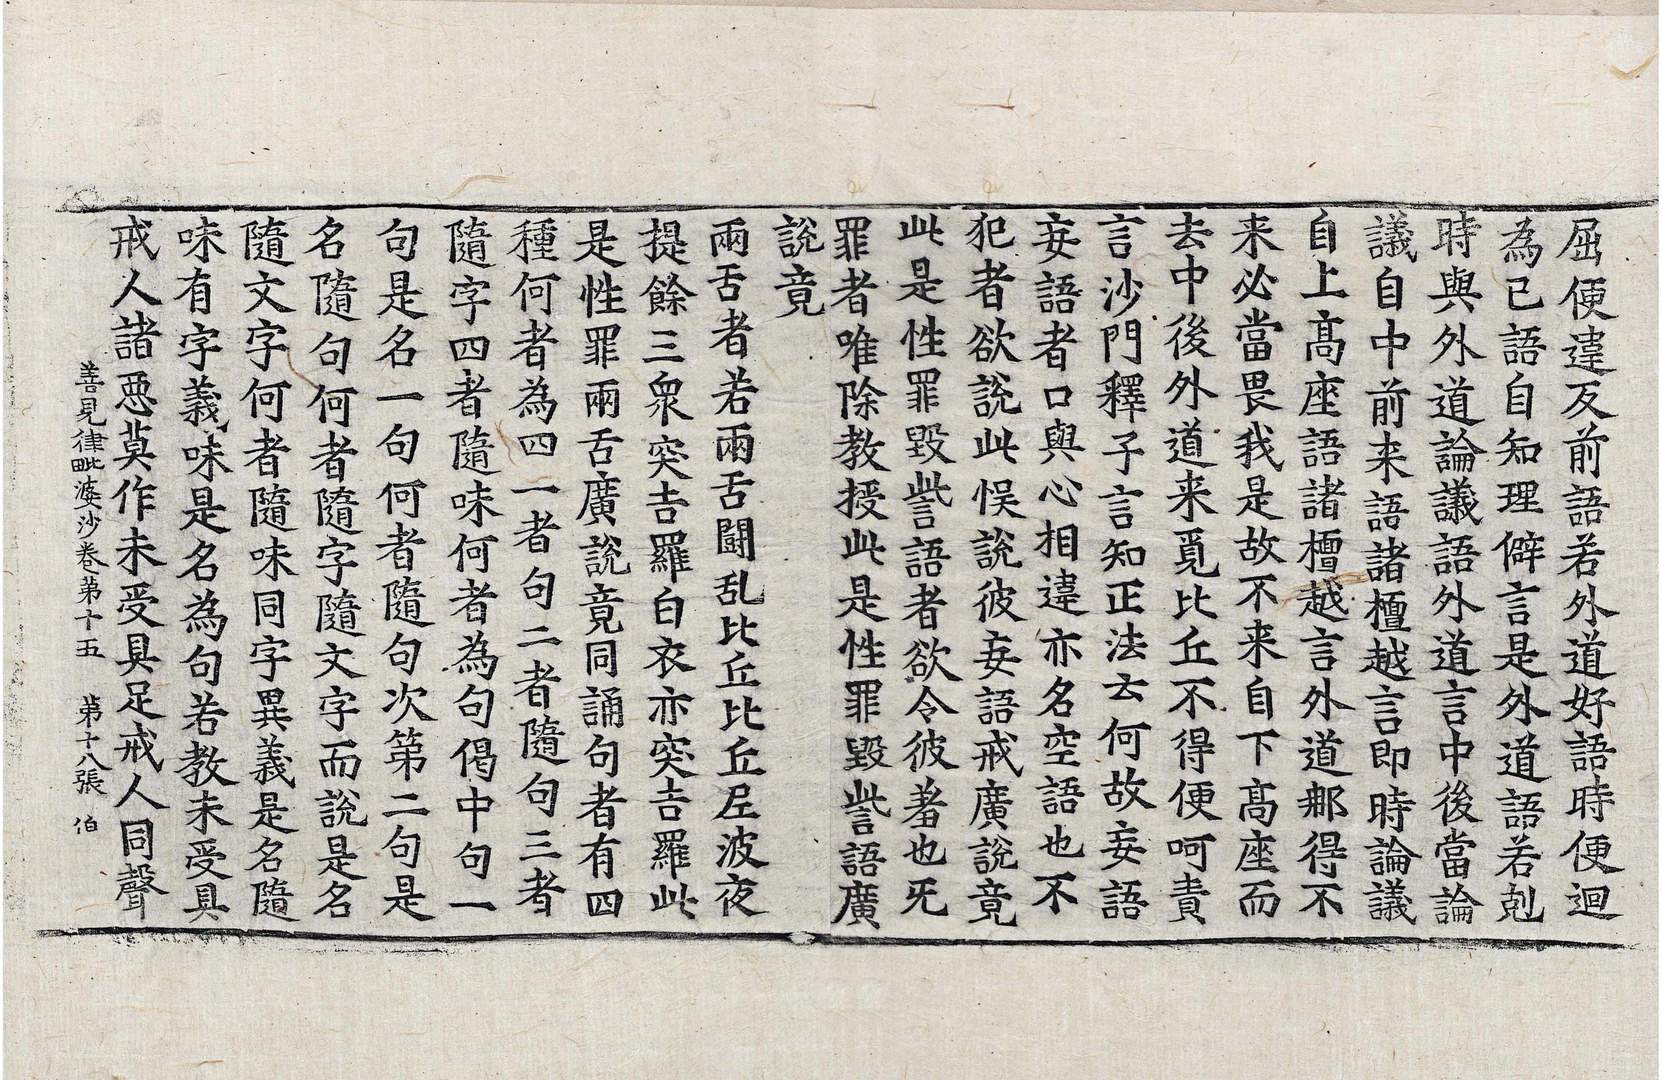 屈便違反前語若外道好語時便迴
為已語自知理僻言是外道語若剋
時與外道論議語外道言中後當論
議自中前来語諸檀越言即時論議
自上髙座語諸檀越言外道那得不
来必當畏我是故不来自下髙座而
去中後外道来覓比丘不得便呵責
言沙門釋子言知正法云何故妄語
妄語者口與心相違亦名空語也不
犯者欲說此悮說彼妄語戒廣說竟
此是性罪毀呰語者欲令彼羞也旡
罪者唯除教授此是性罪毀呰語廣
說竟
兩舌者若兩舌鬪乱比丘比丘尼波夜
提餘三衆突吉羅白衣亦突吉羅此
是性罪兩舌廣說竟同誦句者有四
種何者為四一者句二者隨句三者
隨字四者隨味何者為句偈中句一
句是名一句何者隨句次第二句是
名隨句何者隨字隨文字而說是名
隨文字何者隨味同字異義是名隨
味有字義味是名為句若教未受具
戒人諸惡莫作未受具足戒人同聲
善見律毗婆沙卷第十五 第十八張 伯